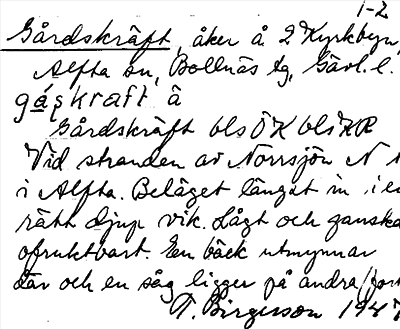 1-2
Gårdskräft, åker å 2 Kyrkbyn,
Alfta sn, Bollnäs tg, Gävl. l.
gáskraft å
Gårdskräft bls ÖK bls HR
Vid stranden av Norrsjön N
i Alfta. Beläget längst in i en
rätt djup vik. Lågt och ganska
ofruktbart. En bäck utmynnar
där och en såg ligger på andra
Birgersson 194